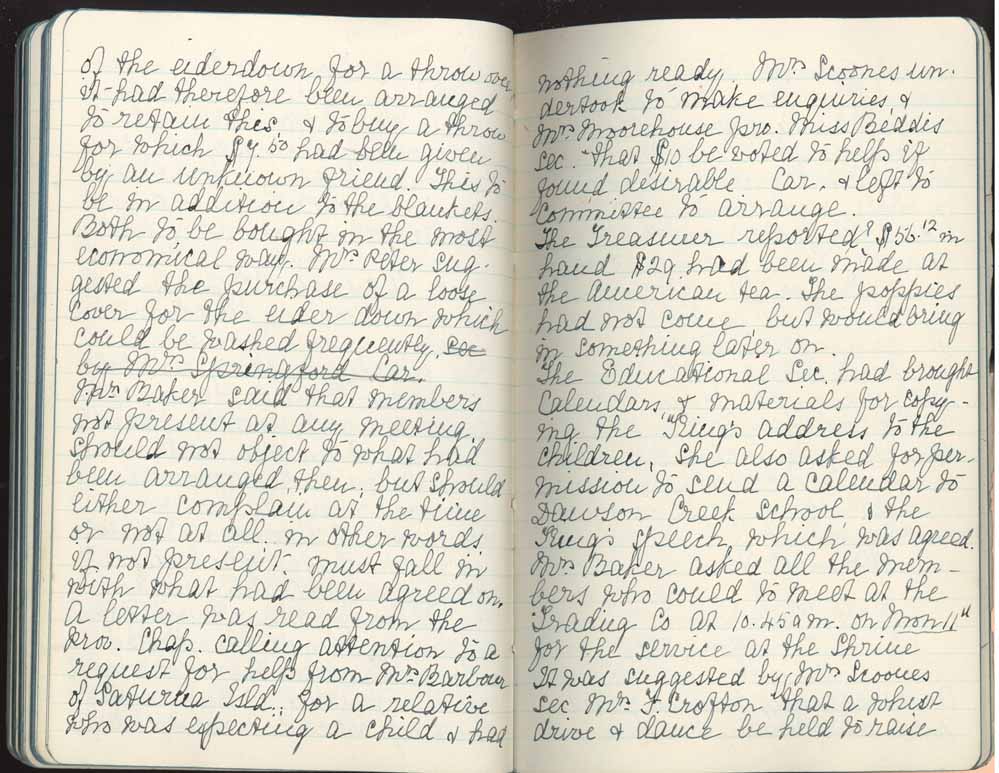 of the eiderdown for a throw over
it had therefore been arranged
to retain this, & to buy a throw
for which $7.50 had been given
by an unknown friend. This to
be in addition to the blankets.
Both to be bought in the most
economical way. Mrs Peter sug-
gested the purchase of a loose
cover for the eider down which
could be washed frequently, sec
by Mrs Springford Car.
Mrs Baker said that members
not present at any meeting
should not object to what had
been arranged then; but should
either complain at the time
or not at all. in other words
if not present. must fall in
with what had been agreed on.
a letter was read from the
Prov. Chap. calling attention to a
request for help from Mrs Barbour
of Saturna Isld., for a relative
who was expecting a child & had
nothing ready. Mrs Scoones un-
dertook to make enquiries, &
Mrs Moorehouse pro. Miss Beddis
sec. "that $10 be voted to help if
found desirable. Car. & left to
Committee to arrange.
The Treasurer reported $56.12 in
hand $29 had been made at
the American tea. The poppies
had not come, but would bring
in something later on.
The Educational Sec. had brought
Calendars & materials for copy-
ing the "King's address to the
children. She also asked for per-
mission to send a calendar to
Dawson Creek school, & the
King's speech which was agreed.
Mrs Baker asked all the mem-
bers who could to meet at the
Trading Co at 10.45 a.m. on Mon 11th
for the service at the Shrine
It was suggested by Mrs Scoones
sec Mrs F Crofton that a whist
drive & dance be held to raise